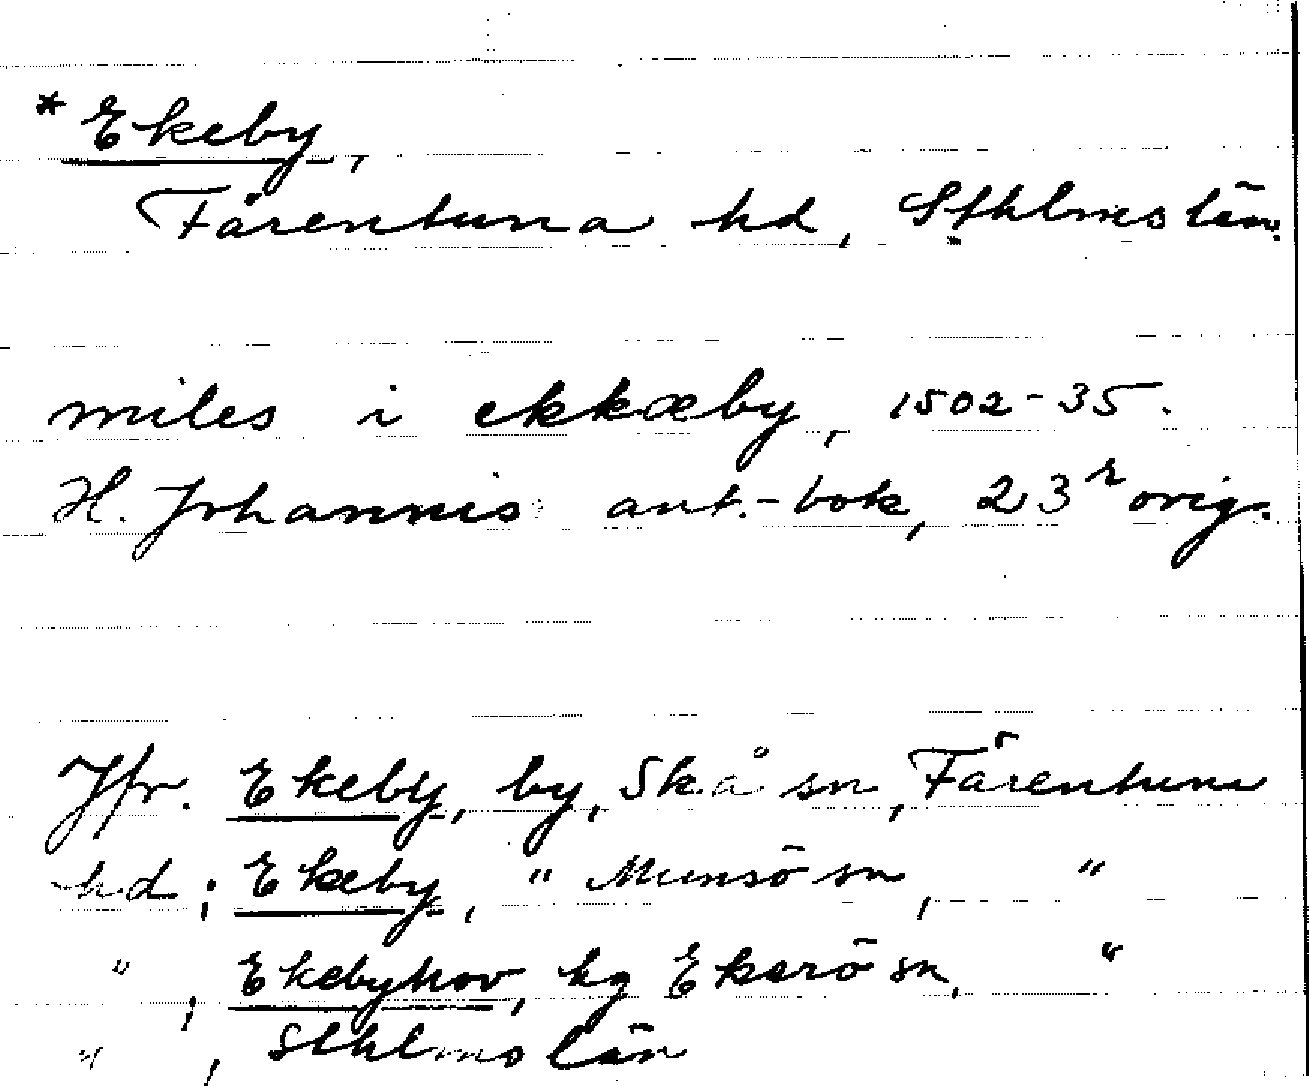 * Ekeby,
Färentuna hd, Sthlms län.
miles i ekkæby, 1502-35.
H. Johannis ant.-bok, 23r orig.
Jfr. Ekeby, by, Skå sn, Färentuna
hd; Ekeby, " Munsö sn, "
" ; Ekebyhov, hg Ekerö sn, "
" , Sthlms län